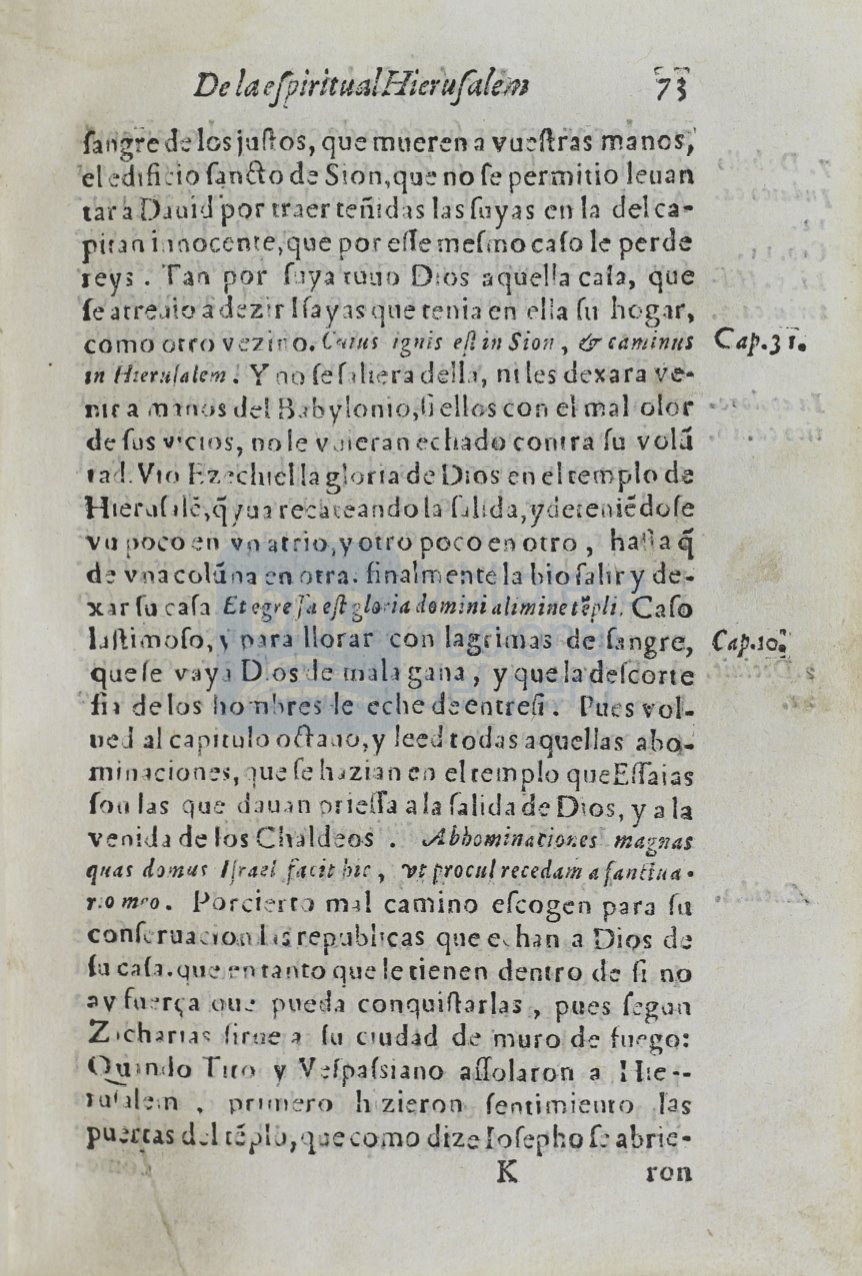 De la eſpiritual Hieruſalem 73
ſangre de los juſtos, que mueren a vueſtras manos,
el edificio ſancto de Sion, que no ſe permitio leuan
tar a Dauid por traer teñidas las ſuyas en la del ca-
pitan innocente, que por eſſe meſmo caſo le perde
reys. Tan por ſuya tuuo Dios aquella caſa, que
ſe atreuio a dezir Iſayas que tenia en ella ſu hogar,
como otro vezino. Cuius ignis eſt in Sion, & caminus
in Hieruſalem. Y no ſe ſaliera della, ni les dexara ve-
nir a manos del Babylonio, ſi ellos con el mal olor
de ſus vicios, no le vuieran echado contra ſu volũ
tad. Vio Ezechiel la gloria de Dios en el templo de
Hieruſalẽ, q̃ yua recateando la ſalida, y deteniẽdoſe
vn poco en vn atrio, y otro poco en otro, haſta q̃
de vna colũna en otra. finalmente la hio ſalir y de-
xar ſu caſa Et egreſſa eſt gloria domini à limine tẽpli. Caſo
laſtimoſo, y para llorar con lagrimas de ſangre,
que ſe vaya Dios de mala gana, y que la deſcorte
ſia de los hombres le eche de entre ſi. Pues vol-
ued al capitulo octauo, y leed todas aquellas abo-
minaciones, que ſe hazian en el templo que Eſſaias
ſon las que dauan prieſſa a la ſalida de Dios, y a la
venida de los Chaldeos. Abhominationes magnas
quas domus Iſrael facit hic, vt procul recedam a ſanctua-
rio meo. Porcierto mal camino eſcogen para ſu
conſeruacion las republicas que echan a Dios de
ſu caſa. que en tanto que le tienen dentro de ſi no
ay fuerça que pueda conquiſtarlas, pues ſegun
Zicharias ſirue a ſu ciudad de muro de fuego:
Quando Tito y Veſpaſsiano aſſolaron a Hie--
ruſalem, primero hizieron ſentimiento las
puertas del tẽplo, que como dize Ioſepho ſe abrie-
K ron
Cap. 31.
Cap. 10.